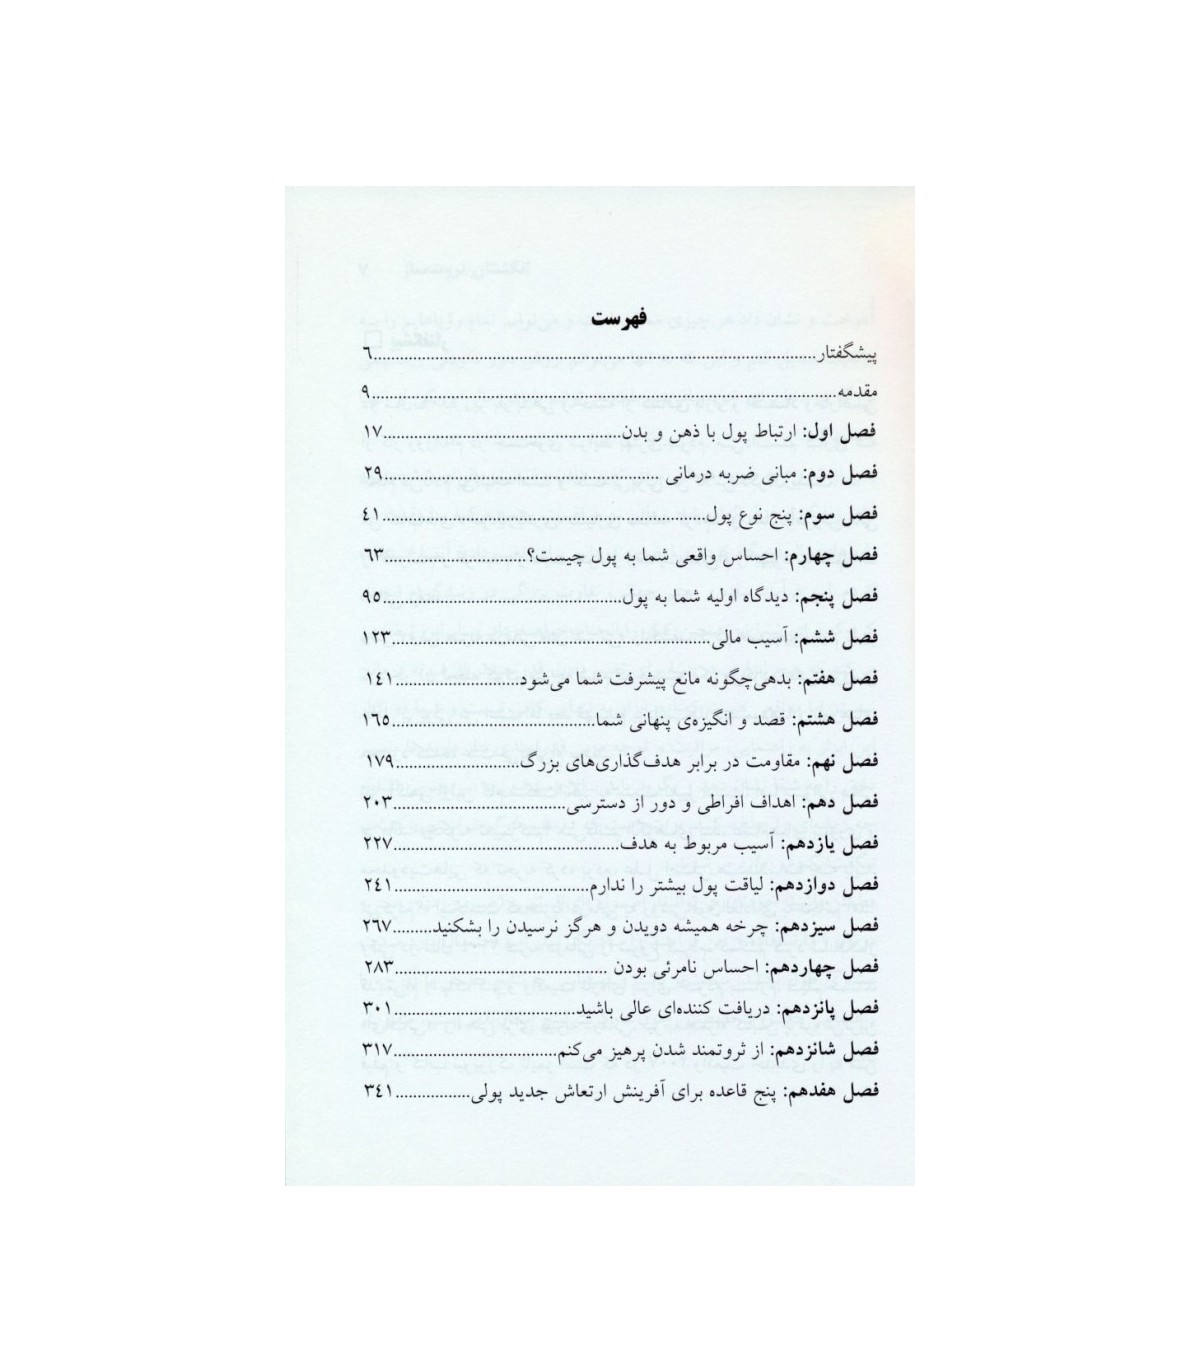 فهرست
پیشگفتار...........................................................................................۶
مقدمه...............................................................................................۹
فصل اول: ارتباط پول با ذهن و بدن......................................................۱۷
فصل دوم: مبانی ضربه درمانی ...........................................................۲۹
فصل سوم: پنج نوع پول.....................................................................۴۱
فصل چهارم: احساس واقعی شما به پول چیست؟..............................۶۳
فصل پنجم: دیدگاه اولیه شما به پول..................................................۹۵
فصل ششم: آسیب مالی..................................................................۱۲۳
فصل هفتم: بدهی‌چگونه مانع پیشرفت شما می‌شود..........................۱۴۱
فصل هشتم: قصد و انگیزه‌ی پنهانی شما..........................................۱۶۵
فصل نهم: مقاومت در برابر هدف‌گذاری‌های بزرگ..........................۱۷۹
فصل دهم: اهداف افراطی و دور از دسترسی....................................۲۰۳
فصل یازدهم: آسیب مربوط به هدف...............................................۲۲۷
فصل دوازدهم: لیاقت پول بیشتر را ندارم.........................................۲۴۱
فصل سیزدهم: چرخه همیشه دویدن و هرگز نرسیدن را بشکنید.........۲۶۷
فصل چهاردهم: احساس نامرئی بودن ............................................۲۸۳
فصل پانزدهم: دریافت کننده‌ای عالی باشید......................................۳۰۱
فصل شانزدهم: از ثروتمند شدن پرهیز می‌کنم..................................۳۱۷
فصل هفدهم: پنج قاعده برای آفرینش ارتعاش جدید پولی.................۳۴۱